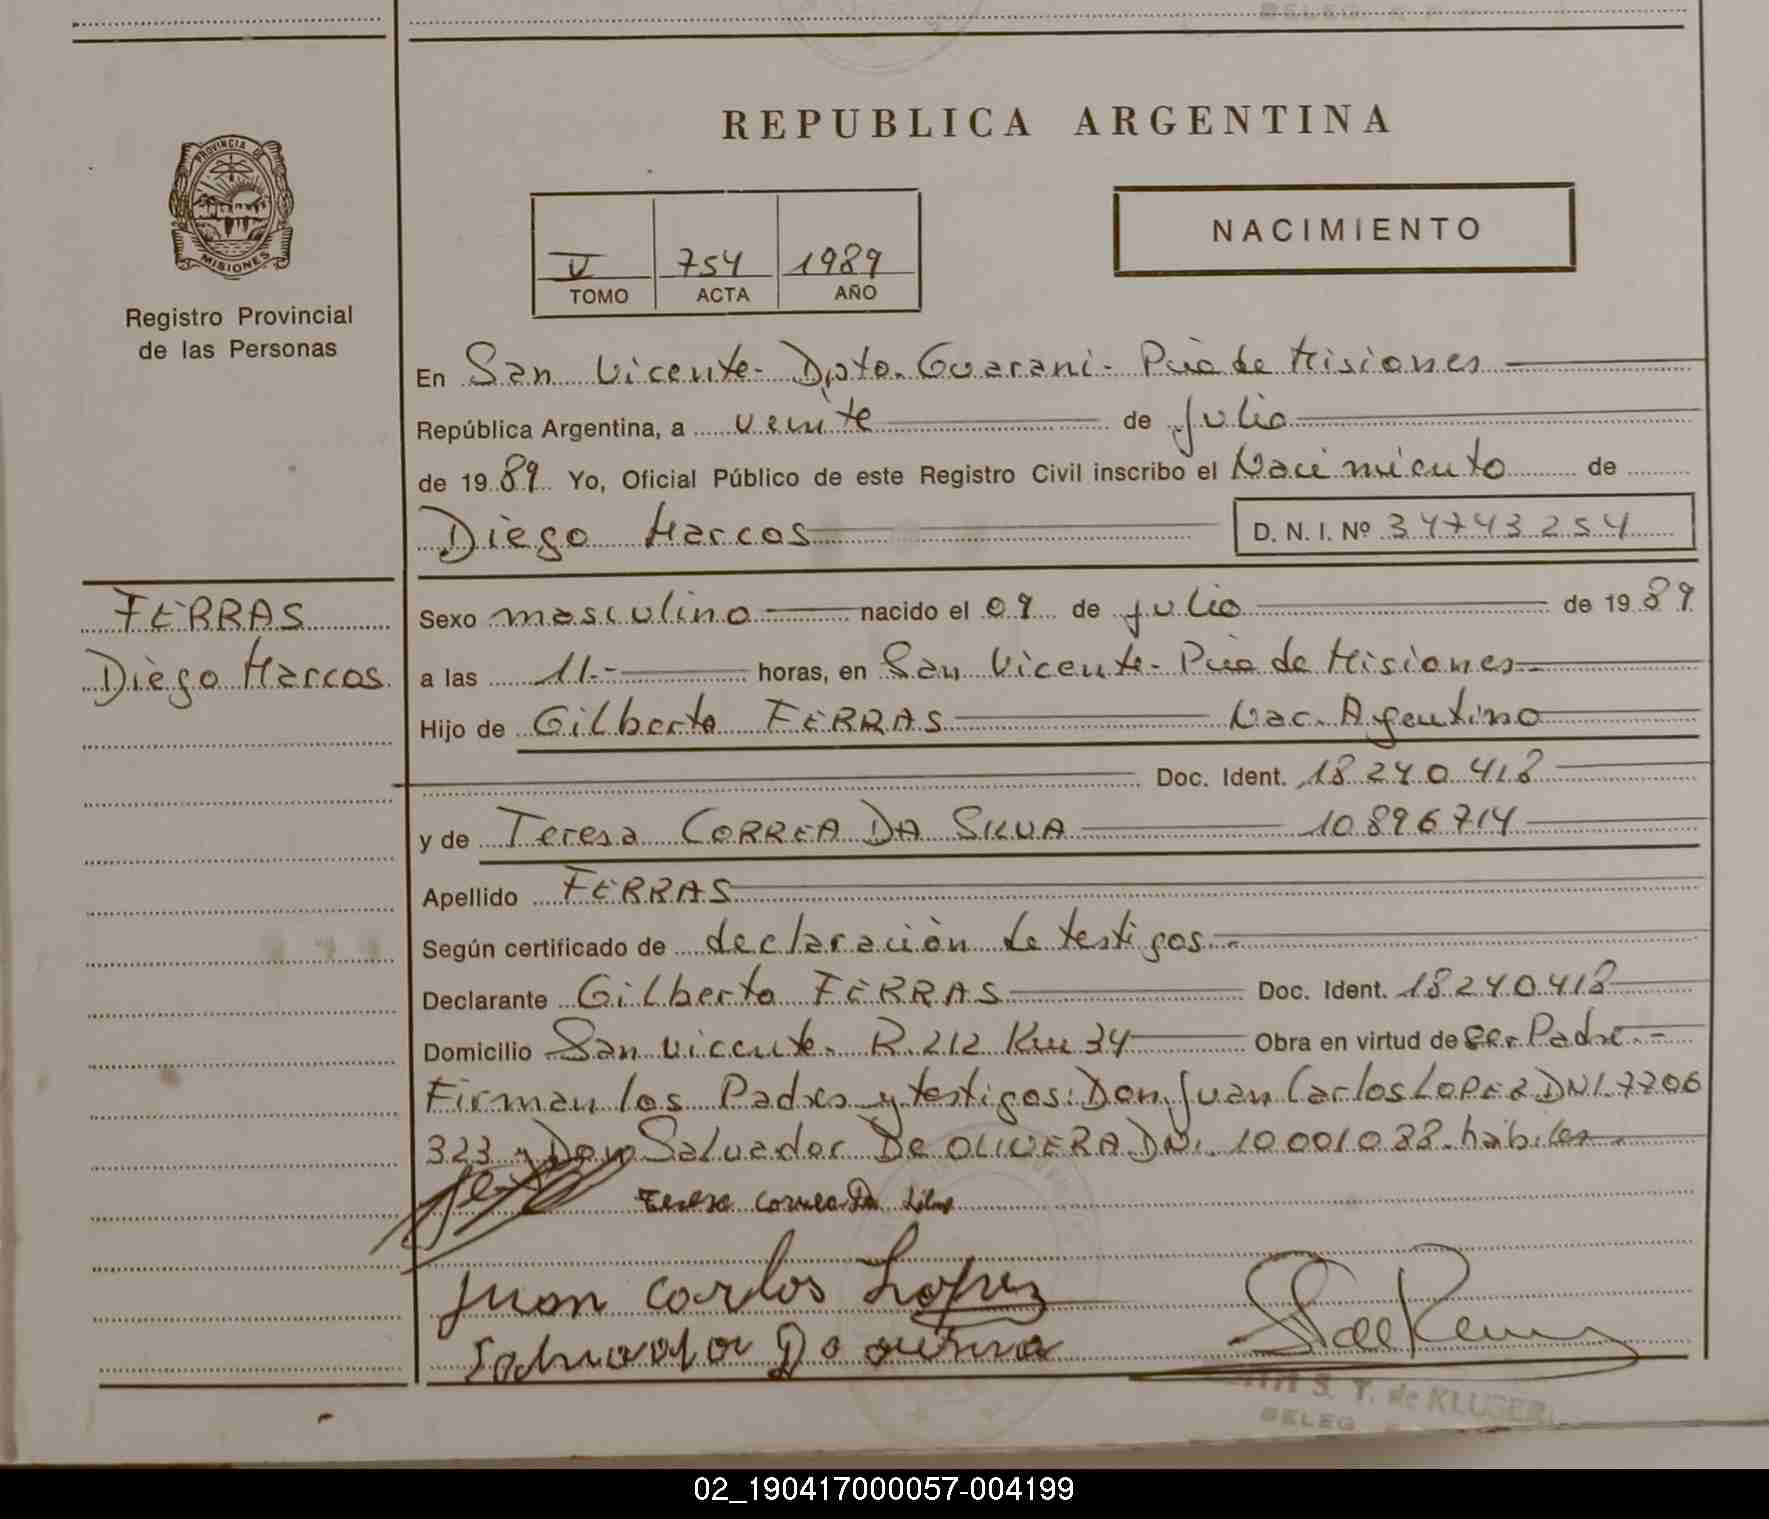 BELEG.
REPUBLICA ARGENTINA
PROVINCIA DE
MISIONES
Registro Provincial
de las Personas
V 754 1989
TOMO ACTA AÑO
NACIMIENTO
En San Vicente- Dpto. Guarani- Pcia de Misiones
República Argentina, a veinte de Julio
de 1989 Yo, Oficial Público de este Registro Civil inscribo el Nacimiento de
Diego Marcos D. N. I. Nº 34743254
FERRAS
Diego Marcos
Sexo masculino nacido el 09 de julio de 1989
a las 11.- horas, en San Vicente- Pcia de Misiones
Hijo de Gilberto FERRAS Nac. Argentino
Doc. Ident. 18240418
y de Teresa CORREA DA SILVA 10896714
Apellido FERRAS
Según certificado de declaración de testigos.-
Declarante Gilberto FERRAS Doc. Ident. 18240418
Domicilio San Vicente. R.212 Km 34 Obra en virtud de ser Padre.-
Firman los Padres y testigos: Don Juan Carlos LOPEZ DNI. 7706
323 y Don Salvador De OLIVERA DNI. 10001022. hábiles.
Teresa Correa Da Silva
Juan Carlos Lopez
S. T. de KLUSENER
BELEG.
02_190417000057-004199